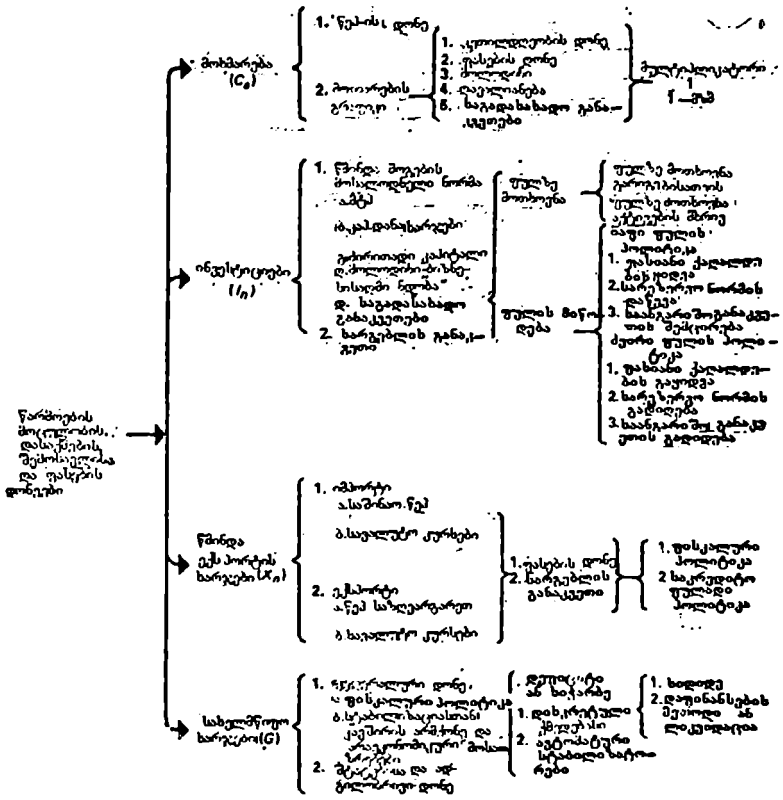 წარმოების
მოცულობის,
დასაქმების,
შემოსავლისა
და ფასების
დონეები
მოხმარება
(C₀)
1. წეპ-ის დონე
2. მოთარების
გრაფიკი
1. კეთილდღეობის დონე
2. ფასების დონე
3. მოლოდინი
4. დავალიანება
5. საგადასახადო განა-
კვეთები
მულტიპლიკატორი
1
ინვესტიციები
(Iₙ)
1. წმინდა მოგების
მოსალოდნელი ნორმა
ბ.კაპ.დანახარჯები
ძირითადი კაპიტალი
დ.მოლოდინი-ბიზნე-
სისადმი ნდობა
ე. საგადასახადო
განაკვეთები
2. სარგებლის განაკ-
ვეთი
ფულზე
მოთხოვნა
ფულის მიწო-
დება
ფულზე მოთხოვნა
გარიგებისათვის
ფულზე მოთხოვნა
აქტივების მხრივ
იაფი ფულის
პოლიტიკა
1. ფასიანი ქაღალდე-
ბის ყიდვა
2. სარეზერვო ნორმის
დაწევა
3. საანგარიშო განაკვე-
თის შემცირება
ძვირი ფულის პოლი-
ტიკა
1. ფასიანი ქაღალდე-
ბის გაყიდვა
2. სარეზერვო ნორმის
გადიდება
3. საანგარიშო განაკვ
ეთის გადიდება
წმინდა
ექსპორტის
ხარჯები (Xₙ)
1. იმპორტი
ა.საშინაო.წეპ
ბ.სავალუტო კურსები
2. ექსპორტი
ა.წეპ საზღვარგარეთ
ბ.სავალუტო კურსები
1. ფასების დონე
2. სარგებლის
განაკვეთი
1. ფისკალური
პოლიტიკა
2 საკრედიტო
ფულადი
პოლიტიკა
სახელმწიფო
ხარჯები (G)
1. ფედერალური დონე,
ა ფისკალური პოლიტიკა
ბ.სტაბილიზაციასთან
კავშირის არმქონე და
არაეკონომიკური მოსა-
ზრებები
2. შტატებისა და ად-
გილობრივი დონე
დეფიციტი
ან სიჭარბე
1. დისკრეტული
ქმედებანი
2. ავტომატური
სტაბილიზატო-
რები
1. სიდიდე
2. დაფინანსების
მეთოდი ან
ლიკვიდაცია